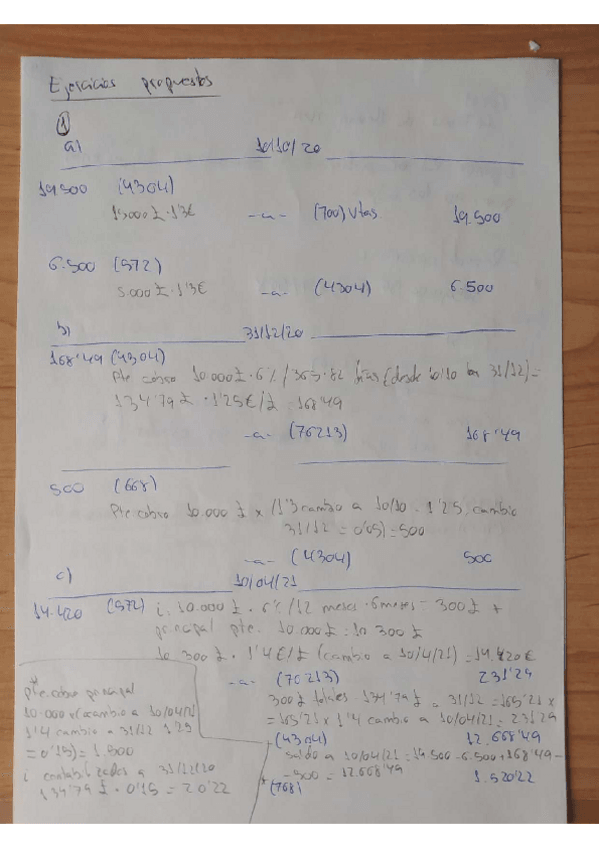 Ejercicios propuestos
1
a) 10/10/20
19.500 (4304)
15000 £ · 1'3€ -a- (700) Vtas 19.500
6.500 (572)
5.000 £ · 1'3€ -a- (4304) 6.500
b) 31/12/20
168'49 (4304)
Pte cobro 10.000 £ · 6% / 365 · 82 (desde 10/10 31/12) =
134'79 £ · 1'25 €/£ = 168'49
-a- (76213) 168'49
500 (668)
Pte cobro 10.000 £ x (1'3 cambio a 10/10 - 1'25 cambio
31/12 = 0'05) = 500
-a- (4304) 500
c) 10/04/21
14.420 (572) i: 10.000 £ · 6% / 12 meses · 6 meses = 300 £ +
principal pte. 10.000 £ = 10 300 £
10 300 £ · 1'4 €/£ (cambio a 10/4/21) = 14.420 €
-a- (76213) 231'29
300 £ totales - 134'79 £ a 31/12 = 165'21 x
= 165'21 x 1'4 cambio a 10/04/21 = 231'29
(4304) 12.668'49
saldo a 10/04/21 = 19.500 - 6.500 + 168'49 -
- 500 = 12.668'49
* (768) 1.520'22
pte. cobro principal
10.000 x (cambio a 10/04/21
1'4 cambio a 31/12 1'25
= 0'15) = 1.500
i contabilizados a 31/12/20
134'79 £ · 0'15 = 20'22